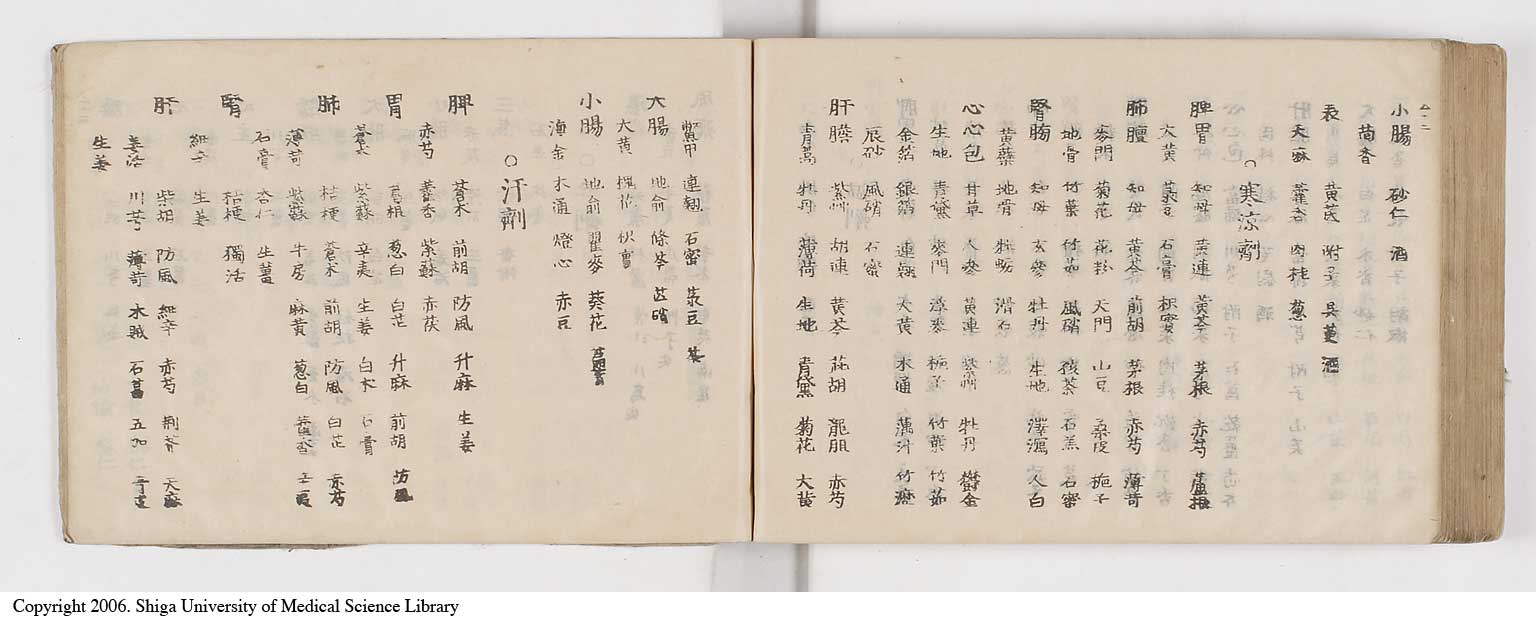 小腸 砂仁 酒
茴香
表 天麻 黄芪 附子 呉茱 酒
藿香 肉桂 葱
○寒涼劑
脾胃 知母 黄連 黄芩 茅根 赤芍 蘆根
大黄 菉豆 石膏 枳實
肺膻 知母 黄芩 前胡 茅根 赤芍 薄苛
麥門 菊花 花粉 天門 山豆 桑皮 梔子
地骨 竹葉 竹茹 風硝 石羔 石蜜
腎 知母 玄參 牡丹 生地 澤瀉 人白
黄蘗 地骨 牡蛎 滑石
心心包 甘草 人參 黄連 紫 牡丹 欝金
生地 青黛 麥門 梔子 竹葉 竹茹
金箔 銀箔 連翹 大黄 木通 藕汁 竹瀝
辰砂 風硝 石蜜
肝膜 紫 胡連 黄芩 胡 龍胆 赤芍
青蒿 牡丹 薄荷 生地 青黛 菊花 大黄
鱉甲 連翹 石蜜 菉豆
大腸 地俞 條芩 芒硝
大黄 槐花 秋
小腸 地俞 瞿麥 葵花
海金 木通 燈心 赤豆
○汗劑
脾 蒼木 前胡 防風 升麻 生姜
赤芍 藿香 紫蘇 赤茯
胃 葛根 葱白 白芷 升麻 前胡 防風
蒼木 紫蘇 辛夷 生姜 白木 石膏
肺 桔梗 蒼木 前胡 防風 白芷 赤芍
薄苛 紫蘇 牛房 麻黄 葱白 藿香
石膏 杏仁 生薑
腎 桔梗 獨活
細辛 生姜
肝 柴胡 防風 細辛 赤芍 荆芥 天麻
羌活 川芎 薄苛 木賊 石菖 五加
生姜